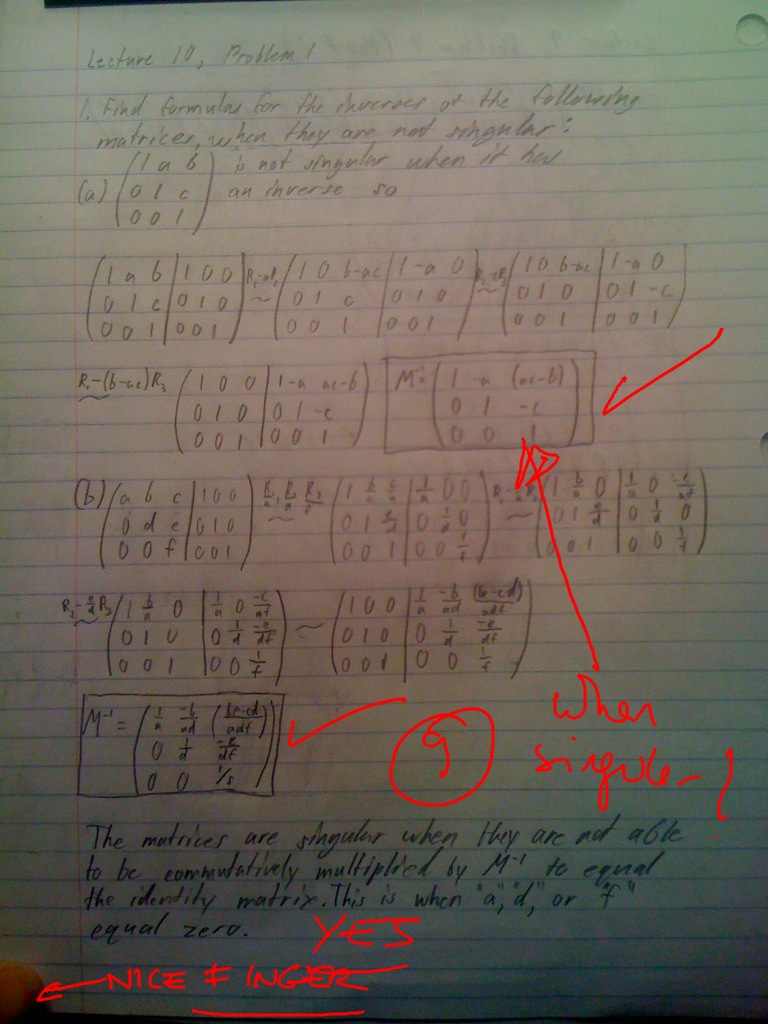 Lecture 10, Problem 1
1. Find formulas for the inverses of the following
matrices, when they are not singular:
(a) (1 a b / 0 1 c / 0 0 1) is not singular when it has
an inverse so
(1 a b | 1 0 0 / 0 1 c | 0 1 0 / 0 0 1 | 0 0 1) R₁-aR₂ ~ (1 0 b-ac | 1 -a 0 / 0 1 c | 0 1 0 / 0 0 1 | 0 0 1) R₂-cR₃ ~ (1 0 b-ac | 1 -a 0 / 0 1 0 | 0 1 -c / 0 0 1 | 0 0 1)
R₁-(b-ac)R₃ ~ (1 0 0 | 1 -a ac-b / 0 1 0 | 0 1 -c / 0 0 1 | 0 0 1) M⁻¹= (1 -a (ac-b) / 0 1 -c / 0 0 1)
(b) (a b c | 1 0 0 / 0 d e | 0 1 0 / 0 0 f | 0 0 1) ~ (1 b/a c/a | 1/a 0 0 / 0 1 e/d | 0 1/d 0 / 0 0 1 | 0 0 1/f) ~ (1 b/a 0 | 1/a 0 -c/af / 0 1 e/d | 0 1/d 0 / 0 0 1 | 0 0 1/f)
R₂-e/d R₃ ~ (1 b/a 0 | 1/a 0 -c/af / 0 1 0 | 0 1/d -e/df / 0 0 1 | 0 0 1/f) ~ (1 0 0 | 1/a -b/ad (be-cd)/adf / 0 1 0 | 0 1/d -e/df / 0 0 1 | 0 0 1/f)
M⁻¹ = (1/a -b/ad (be-cd/adf) / 0 1/d -e/df / 0 0 1/f)
9
when
singular?
The matrices are singular when they are not able
to be commutatively multiplied by M⁻¹ to equal
the identity matrix. This is when "a", "d," or "f"
equal zero.
YES
NICE FINGER